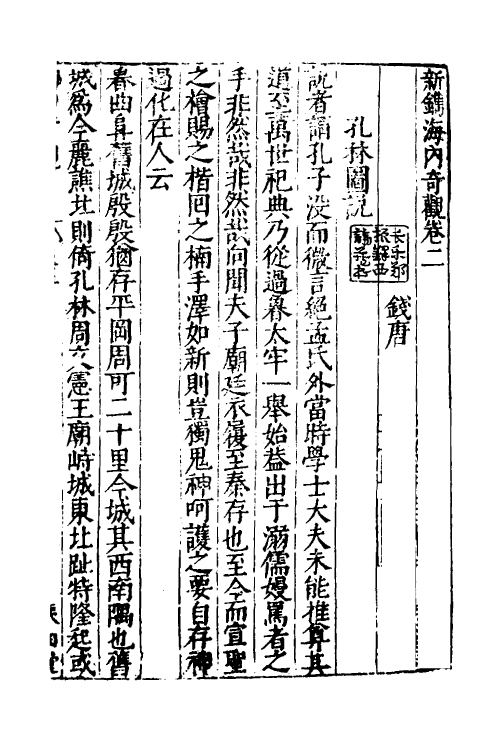 新鐫海內奇觀卷二
錢唐
孔林圖說
說者謂孔子沒而微言絕孟氏外當時學士大夫未能推尊其
道至萬世祀典乃從過魯太牢一舉始益出于溺儒嫚罵者之
手非然哉非然哉向聞夫子廟廷衣履至秦存也至今而宣聖
之檜賜之楷回之楠手澤如新則豈獨鬼神呵護之要自存神
過化在人云
春曲阜舊城殷殷猶存平岡周可二十里今城其西南隅也舊
城爲今麗譙北則倚孔林周文憲王廟峙城東北趾特隆起或